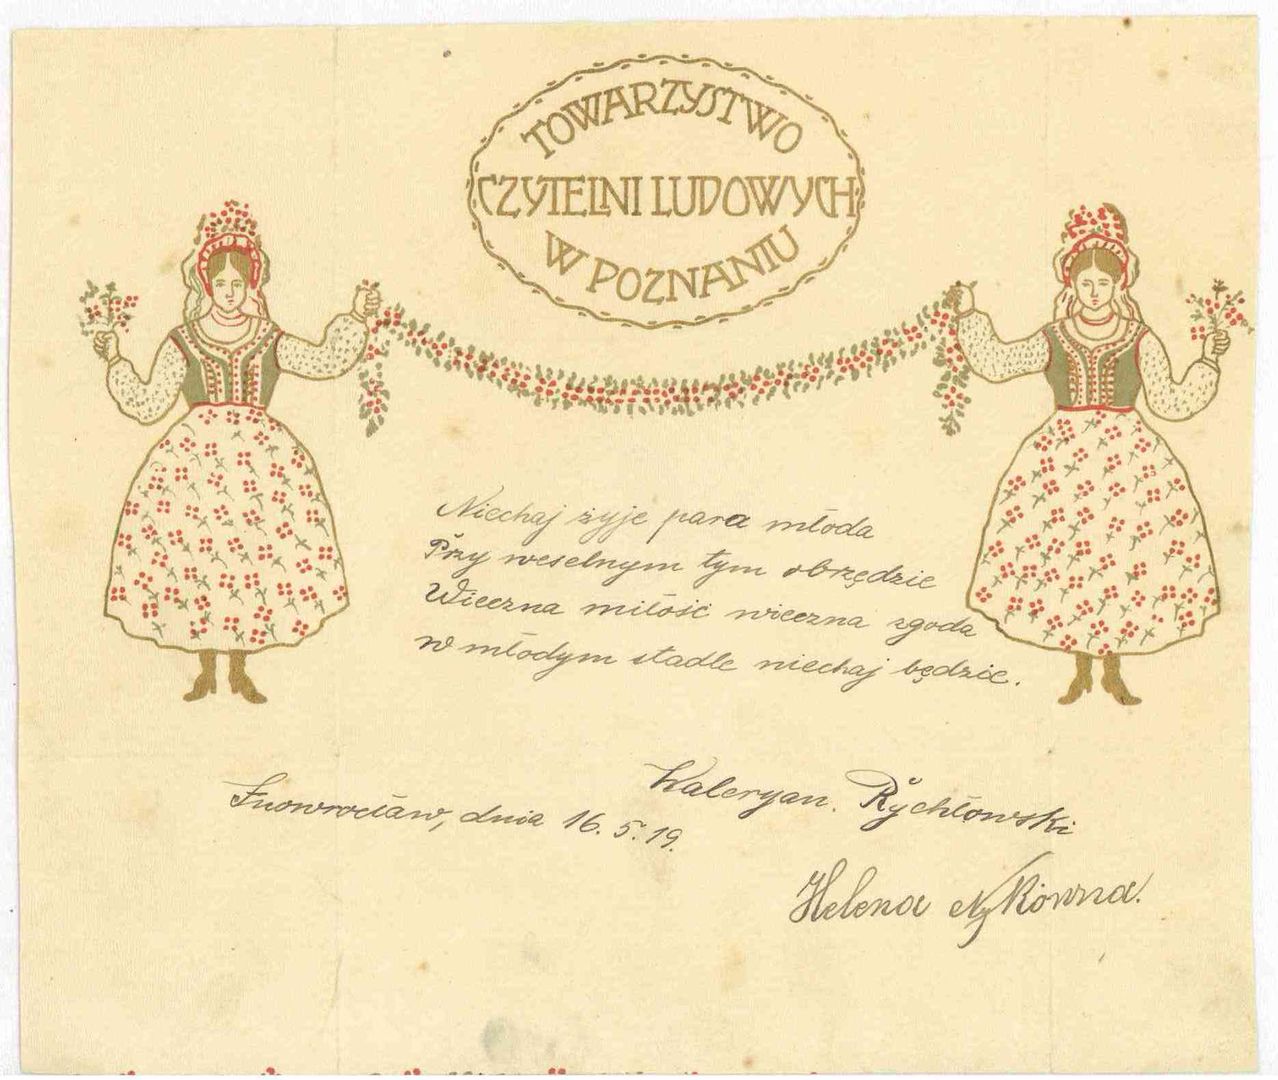 TOWARZYSTWO
CZYTELNI LUDOWYCH
W POZNANIU
Niechaj żyje para młoda
Przy weselnym tym obrzędzie
Wieczna miłość wieczna zgoda
w młodym stadle niechaj będzie.
Inowrocław, dnia 16. 5. 19.
Waleryan. Rychłowski
Helena